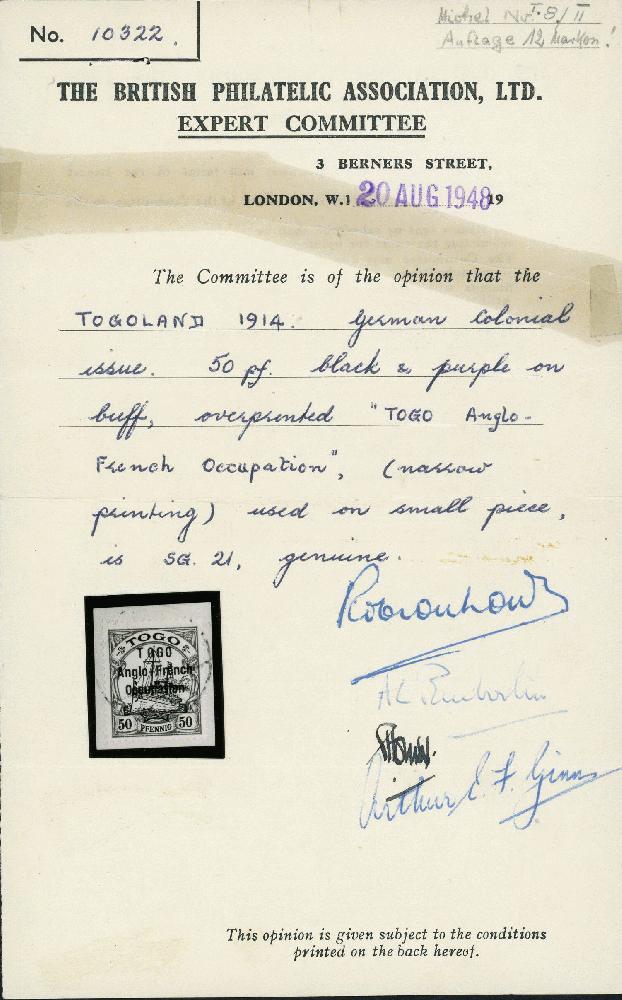 No. 10322.
Michel Nr. I-8/II
Auflage 12 Marken!
THE BRITISH PHILATELIC ASSOCIATION, LTD.
EXPERT COMMITTEE
3 BERNERS STREET,
LONDON, W.1 20 AUG 1948 19
The Committee is of the opinion that the
TOGOLAND 1914. German Colonial
issue. 50 pf. black & purple on
buff, overprinted "TOGO Anglo-
French Occupation", (narrow
printing) used on small piece,
is SG. 21, genuine.
TOGO
TOGO
Anglo-French
Occupation
50 PFENNIG 50
Arthur E. F. Ginn
This opinion is given subject to the conditions
printed on the back hereof.